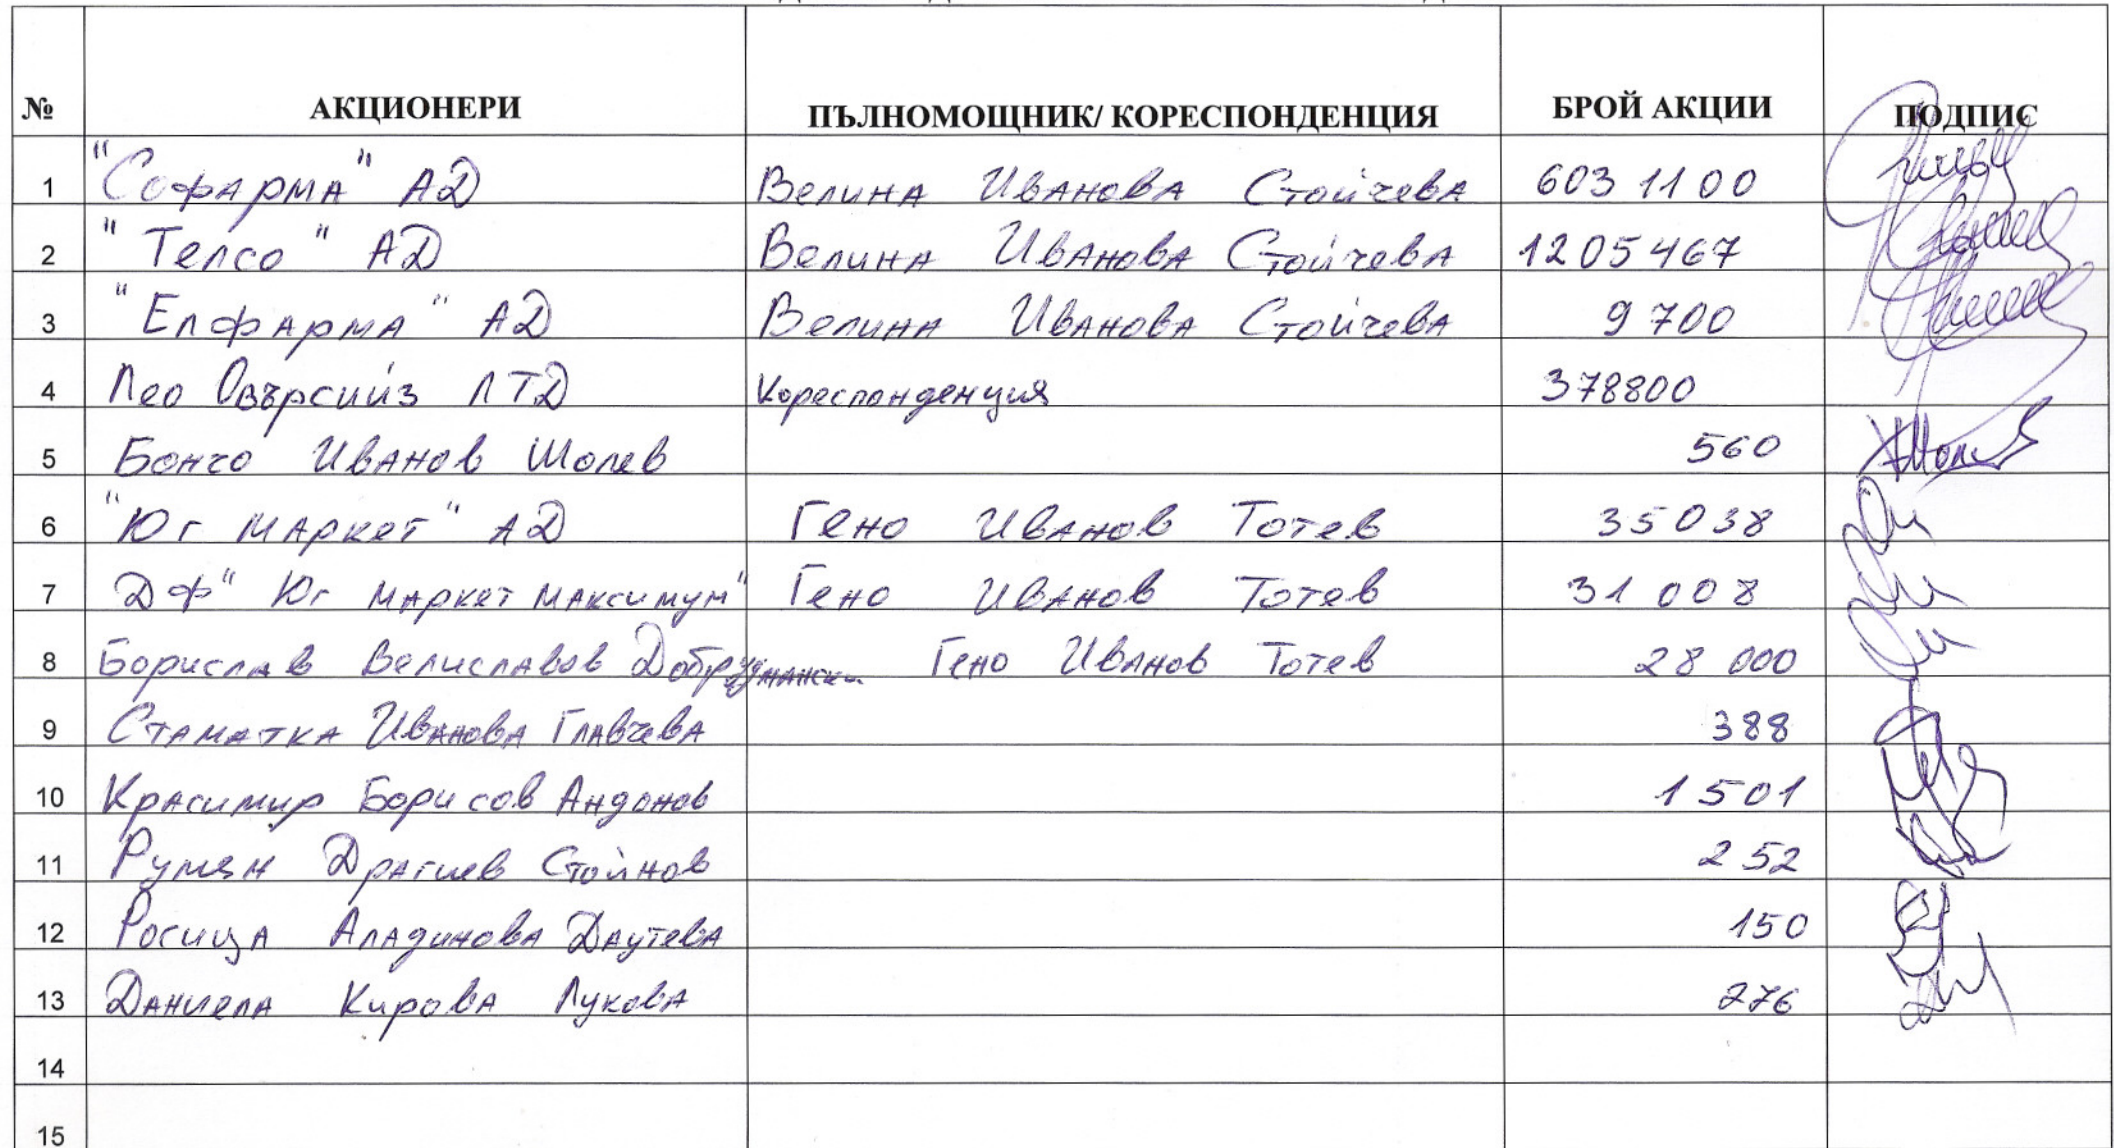 № АКЦИОНЕРИ ПЪЛНОМОЩНИК/ КОРЕСПОНДЕНЦИЯ БРОЙ АКЦИИ ПОДПИС
1 "Софарма" АД Велина Иванова Стойчева 603 11 00
2 "Телсо" АД Велина Иванова Стойчева 1205467
3 "Елфарма" АД Велина Иванова Стойчева 9 700
4 Лео Овърсийз ЛТД Кореспонденция 378800
5 Бончо Иванов Шолев 560
6 "Юг Маркет" АД Гено Иванов Тотев 35038
7 ДФ "Юг Маркет Максимум" Гено Иванов Тотев 31 008
8 Борислав Велиславов Добруджански Гено Иванов Тотев 28 000
9 Стаматка Иванова Главчева 388
10 Красимир Борисов Андонов 1501
11 Румен Драгиев Стойнов 252
12 Росица Аладинова Даутева 150
13 Даниела Кирова Лукова 276
14
15